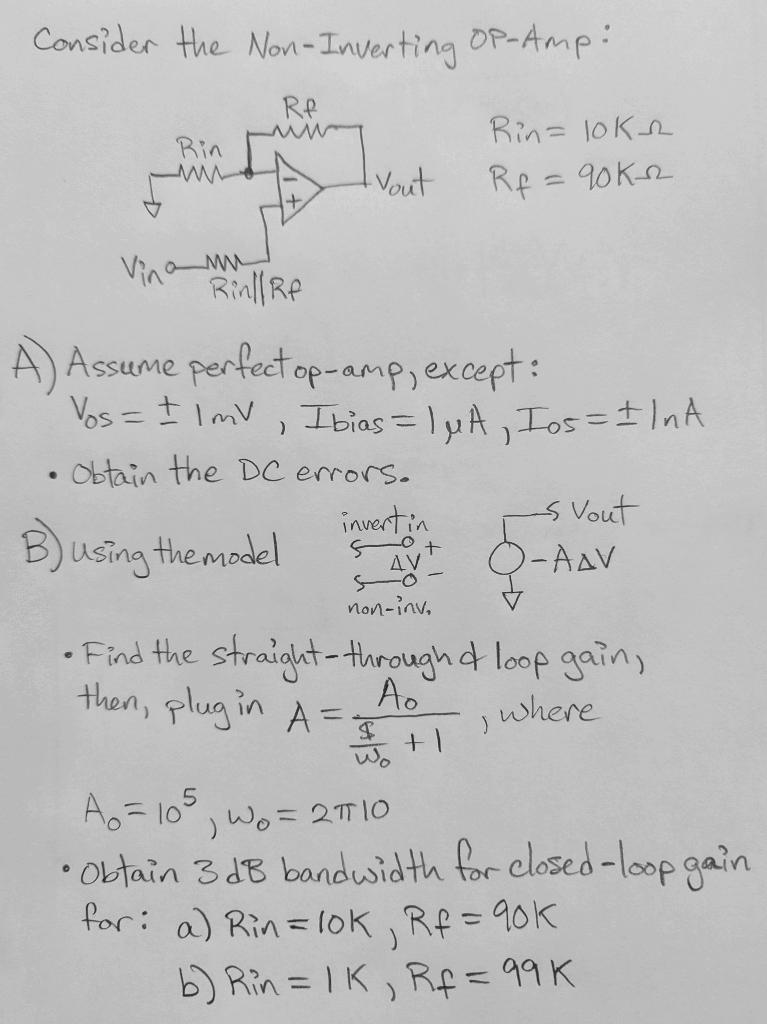 Consider the Non-Inverting OP-Amp:
Rf
Rin
Rin = 10KΩ
Vout
Rf = 90KΩ
-
+
Vin
Rin||Rf
A) Assume perfect op-amp, except:
Vos = ± 1mV , Ibias = 1μA , Ios = ± 1nA
• Obtain the DC errors.
B) using the model
invert in
ΔV + -
non-inv.
Vout
-AΔV
• Find the straight-through & loop gain,
then, plug in A = Ao / ($/ωo + 1) , where
Ao = 10⁵ , ωo = 2π10
• Obtain 3dB bandwidth for closed-loop gain
for: a) Rin = 10K , Rf = 90K
b) Rin = 1K , Rf = 99K